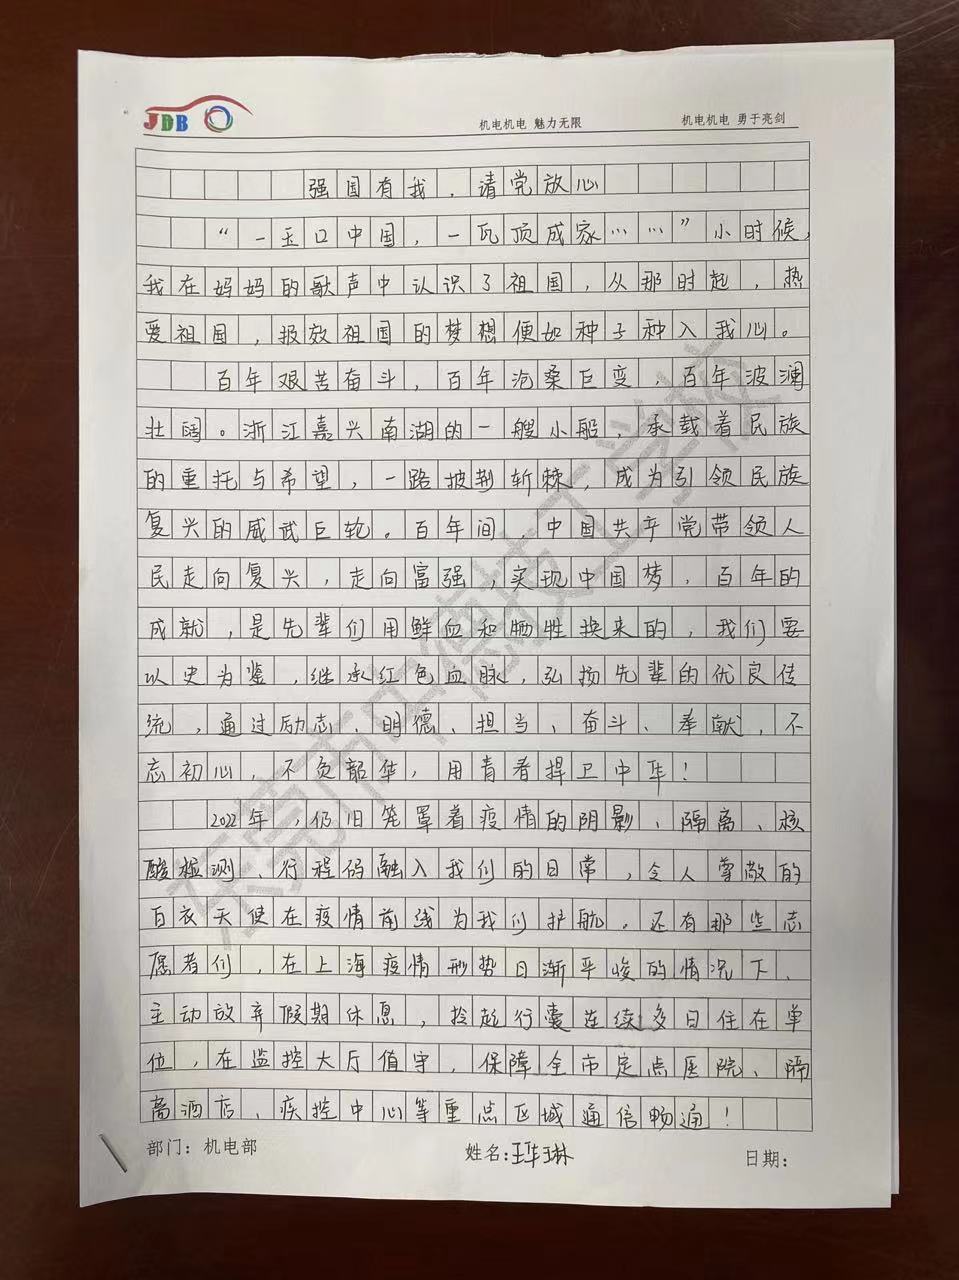 JDB
机电机电 魅力无限
机电机电 勇于亮剑
强国有我，请党放心
“一玉口中国，一瓦顶成家……”小时候，
我在妈妈的歌声中认识了祖国，从那时起，热
爱祖国，报效祖国的梦想便如种子种入我心。
百年艰苦奋斗，百年沧桑巨变，百年波澜
壮阔。浙江嘉兴南湖的一艘小船，承载着民族
的重托与希望，一路披荆斩棘，成为引领民族
复兴的威武巨轮。百年间，中国共产党带领人
民走向复兴，走向富强，实现中国梦，百年的
成就，是先辈们用鲜血和牺牲换来的，我们要
以史为鉴，继承红色血脉，弘扬先辈的优良传
统，通过励志、明德、担当、奋斗、奉献，不
忘初心，不负韶华，用青春捍卫中华！
2022年，仍旧笼罩着疫情的阴影、隔离、核
酸检测、行程码融入我们的日常，令人尊敬的
白衣天使在疫情前线为我们护航，还有那些志
愿者们，在上海疫情形势日渐严峻的情况下、
主动放弃假期休息，拎起行囊连续多日住在单
位，在监控大厅值守，保障全市定点医院、隔
离酒店、疾控中心等重点区域通信畅通！
部门：机电部
姓名：王华琳
日期：
东莞市中德技工学校